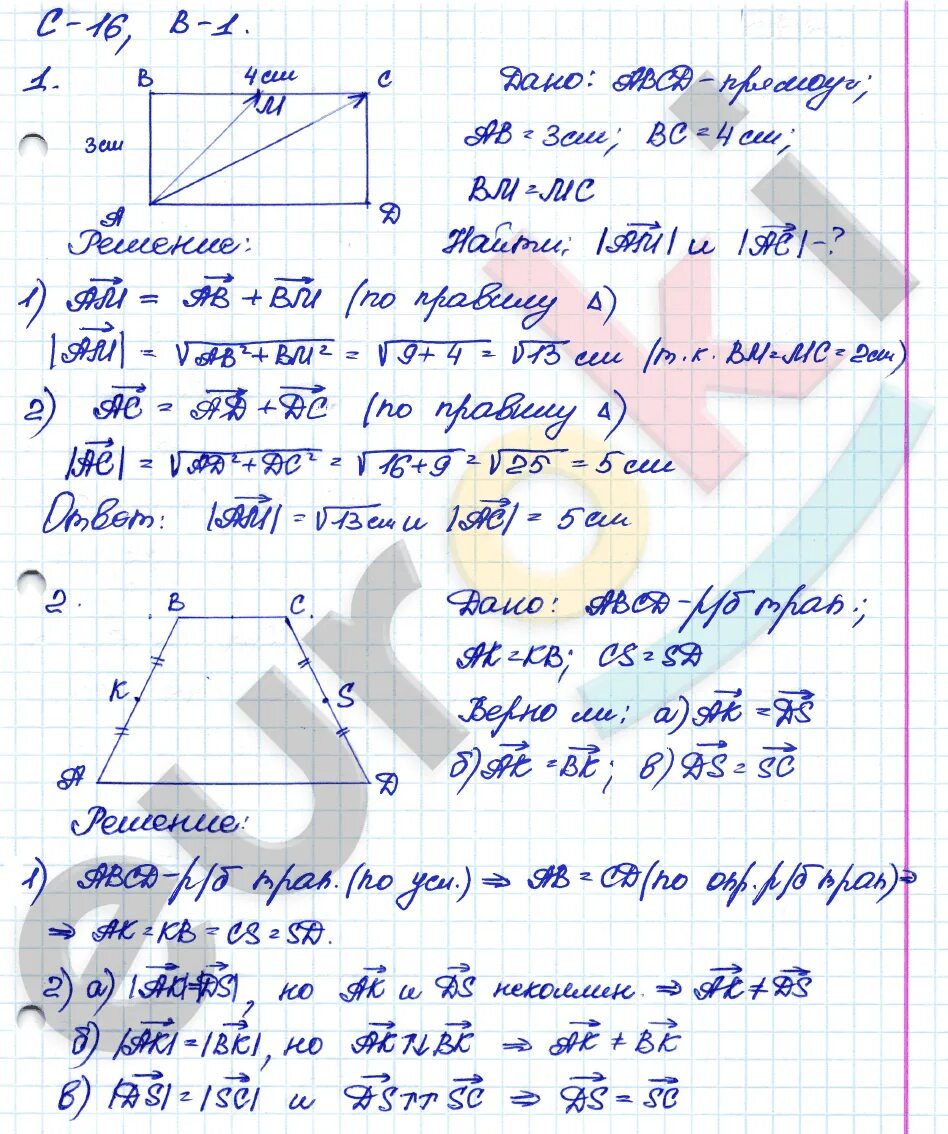 С-16, В-1.
1.
B 4см C
M
3см
A D
Дано: ABCD - прямоуг;
AB = 3см; BC = 4см;
BM = MC
Найти: |AM| и |AC| - ?
Решение:
1) AM = AB + BM (по правилу Δ)
|AM| = √AB²+BM² = √9+4 = √13 см (т.к. BM=MC=2см)
2) AC = AD + DC (по правилу Δ)
|AC| = √AD²+DC² = √16+9 = √25 = 5см
Ответ: |AM| = √13см и |AC| = 5см
2.
B C
K S
A D
Дано: ABCD - р/б трап.;
AK=KB; CS=SD
Верно ли: а) AK = DS
б) AK = BK; в) DS = SC
Решение:
1) ABCD - р/б трап. (по усл.) ⇒ AB = CD (по опр. р/б трап) ⇒
⇒ AK = KB = CS = SD.
2) а) |AK|=|DS|, но AK и DS неколлин. ⇒ AK ≠ DS
б) |AK| = |BK|, но AK↑↓BK ⇒ AK ≠ BK
в) |DS| = |SC| и DS↑↑SC ⇒ DS = SC
euroki